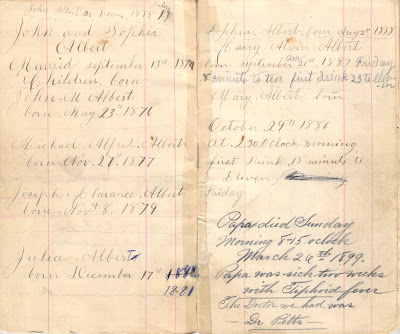 John Albert Sr Born 1858
John and Sophia
Albert
Maried September 13th 1874
Children, born
John. M Albert
born May 23th 1876
Michael Alfred. Albert
born Nov. 27th 1877
Joseph. Clarance. Albert
born Nov 8. 1879
Julia. Albert
born December 17th
1881
Sophia Albert born Aug
Harry Alvin Albert
born September 21st am 1883 Friday
8 minuts to ten first drink 23 to eleven
Mary. Albert, born
October. 29th 1886
At 2.30. O clock morning,
first Drink, 15 minuts to
Eleven
Friday
Papa died Sunday
Morning 8-15 oclock
March 26th 1899.
Papa was sick two weeks
with Tiphoid fever
The Doctor we had was
- Dr. Pitts -